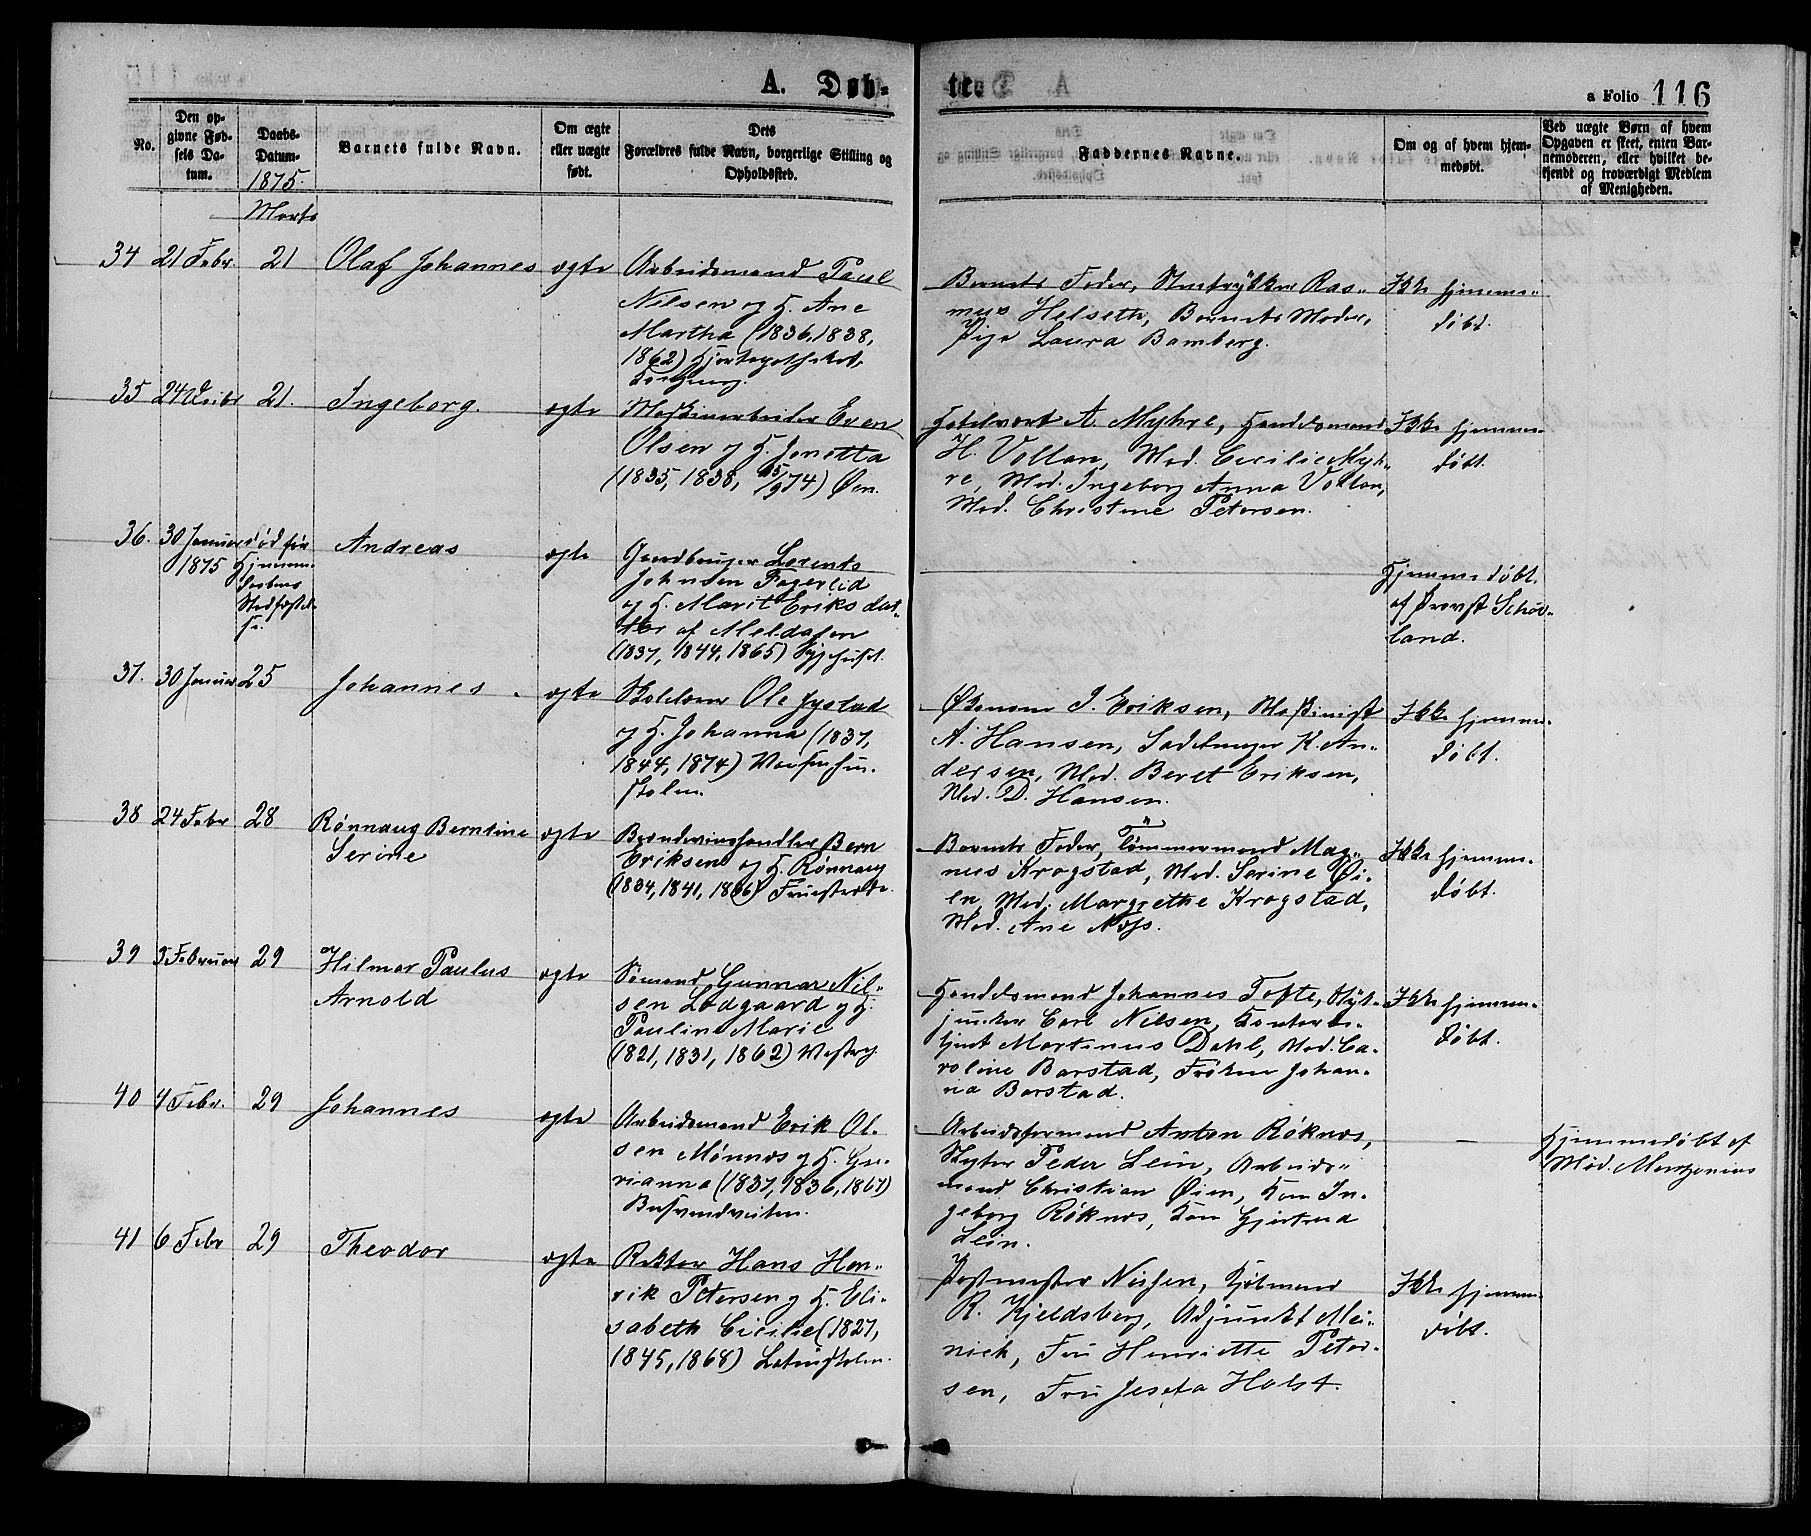 A. Døb-
te.
a Folio 116
No.
Den op-
givne Fød-
sels Da-
tum.
Daabs-
Datum.
1875.
Barnets fulde Navn.
Om ægte
eller uægte
født.
Dets
Forældres fulde Navn, borgerlige Stilling og
Opholdssted.
Faddernes Navne.
Om og af hvem hjem-
medøbt.
Ved uægte Børn af hvem
Opgaven er skeet, enten Bar-
nemoderen, eller hvilket be-
kjendt og troværdigt Medlem
af Menigheden.
Marts
34 21 Febr 21 Olaf Johannes ægte Arbeidsmand Paul
Nilsen og H. Ane
Martha (1836, 1838,
1862)
Barnets Fader, Ras-
mus Helseth, Barnets Moder,
Pige Laura Bamberg.
Ikke hjemme-
døbt.
35 24 21. Ingeborg. ægte Maskinarbeider Even
Olsen og H. Jonetta
(1835, 1838, 74) Øen.
A. Myhre, Handelsmand
H. Voltan, Mad. Cecilie Myh-
re, Mad. Ingeborg Anna Voltan,
Mad. Christine Petersen.
Ikke hjemme-
døbt.
36. 30 Januar
1875
død før
Hjemme-
daabens
Stadfæstel-
se.
Andreas ægte Gaardbruger Lorents
Johnsen Fagerlid
og H. Marit Eriksdat-
ter af Meldalen
(1837, 1844, 1865) Sygehuset.
Hjemmedøbt
af Provst Schøe-
land.
37. 30 Januar 25 Johannes ægte Ole Jystad
og H. Johanna (1837,
1844, 1874) Vaisenhus-
skolen.
Økonom J. Eriksen, Maskinist
A. Hansen, Sadelmager K. An-
dersen, Mad. Beret Eriksen,
Mad. D. Hansen.
Ikke hjemme-
døbt.
38 24 Febr 28 Rønnaug Berntine
Serine
ægte Brændevinshandler Bern
Eriksen og H. Rønnaug
(1834, 1841, 1866)
Barnets Fader, Tømmermand Mag-
nus Krogstad, Mad. Serine Øi-
en, Mad. Margrethe Krogstad,
Mad. Ane Næss.
Ikke hjemme-
døbt.
39 3 Februar 29 Hilmar Paulus
Arnold
ægte Sømand Gunnar Nil-
sen Lodgaard og H.
Pauline Marie
(1821, 1831, 1862)
Handelsmand Johannes Tofte,
Carl Nilsen, Kontorbe-
tjent Martinus Dahl, Mad. Ca-
roline Barstad, Frøken Johan-
na Barstad.
Ikke hjemme-
døbt.
40 4 Febr. 29 Johannes ægte Arbeidsmand Erik Ol-
sen Mønnæs og H. Gu-
rianna (1837, 1836, 1867)
Arbeidsformand Anton Røknæs,
Peder Lein, Arbeids-
mand Christian Øien, Kone In-
geborg Røknæs, Kone Gjertrud
Lein.
Hjemmedøbt af
Mad.
41 6 Febr 29 Theodor ægte Rektor Hans Hen-
rik Petersen og H. Eli-
sabeth Cicilie (1827,
1845, 1868) Latinskolen.
Postmester Nissen, Kjøbmand
R. Kjeldsberg, Adjunkt Mei-
nich, Fru Henriette Peter-
sen, Fru Josefa Holst.
Ikke hjemme-
døbt.